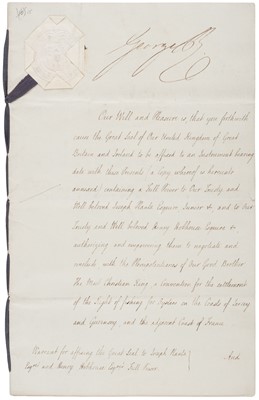 George R
Our Will and Pleasure is, that you forthwith
cause the Great Seal of Our United Kingdom of Great
Britain and Ireland to be affixed to an Instrument bearing
date with these Presents (a Copy whereof is hereunto
annexed) containing a Full Power to Our Trusty and
Well beloved Joseph Planta Esquire, Junior &c. and to Our
Trusty and Well beloved Henry Hobhouse Esquire &c
authorizing and empowering them to negotiate and
conclude, with the Plenipotentiaries of Our Good Brother
The Most Christian King, a Convention for the settlement
of the Right of fishing for Oysters on the Coasts of Jersey
and Guernsey and the adjacent Coast of France.
And
Warrant for affixing the Great Seal to Joseph Planta
Esqre. and Henry Hobhouse Esqre. Full Power.